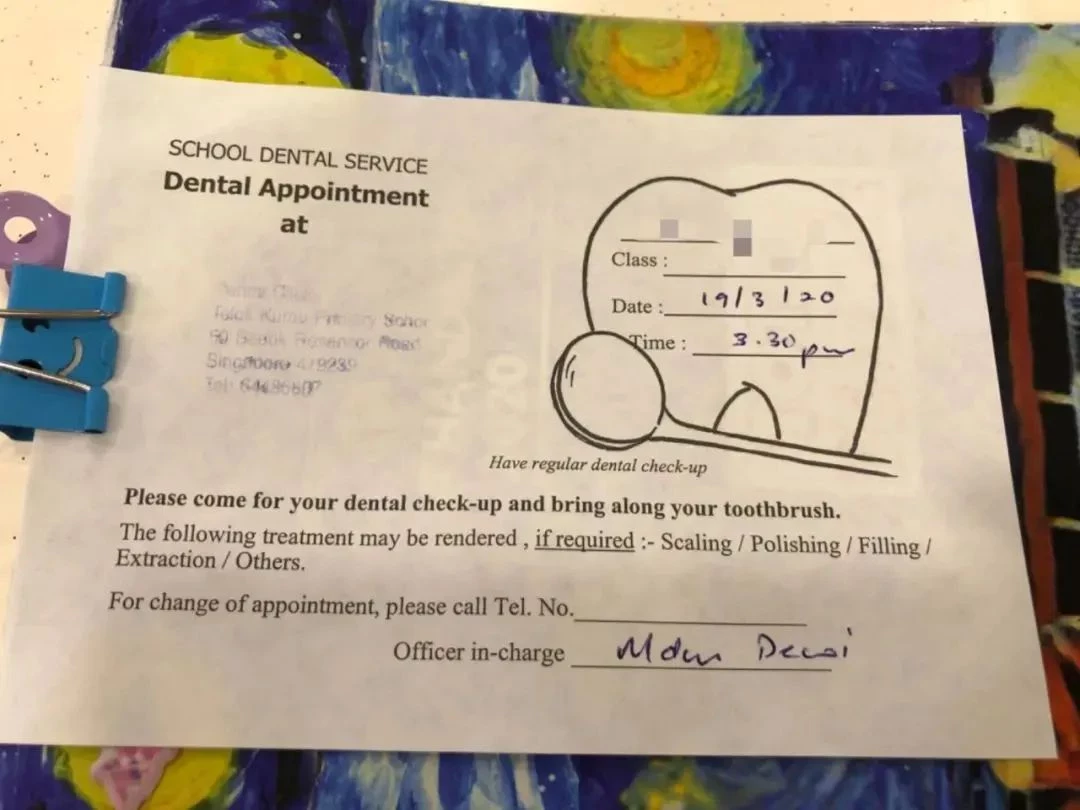 SCHOOL DENTAL SERVICE
Dental Appointment
at
Primary School
Singapore
Tel:
Class :
Date : 19/3/20
Time : 3.30 pm
Have regular dental check-up
Please come for your dental check-up and bring along your toothbrush.
The following treatment may be rendered , if required :- Scaling / Polishing / Filling /
Extraction / Others.
For change of appointment, please call Tel. No.
Officer in-charge Mdm Dewi